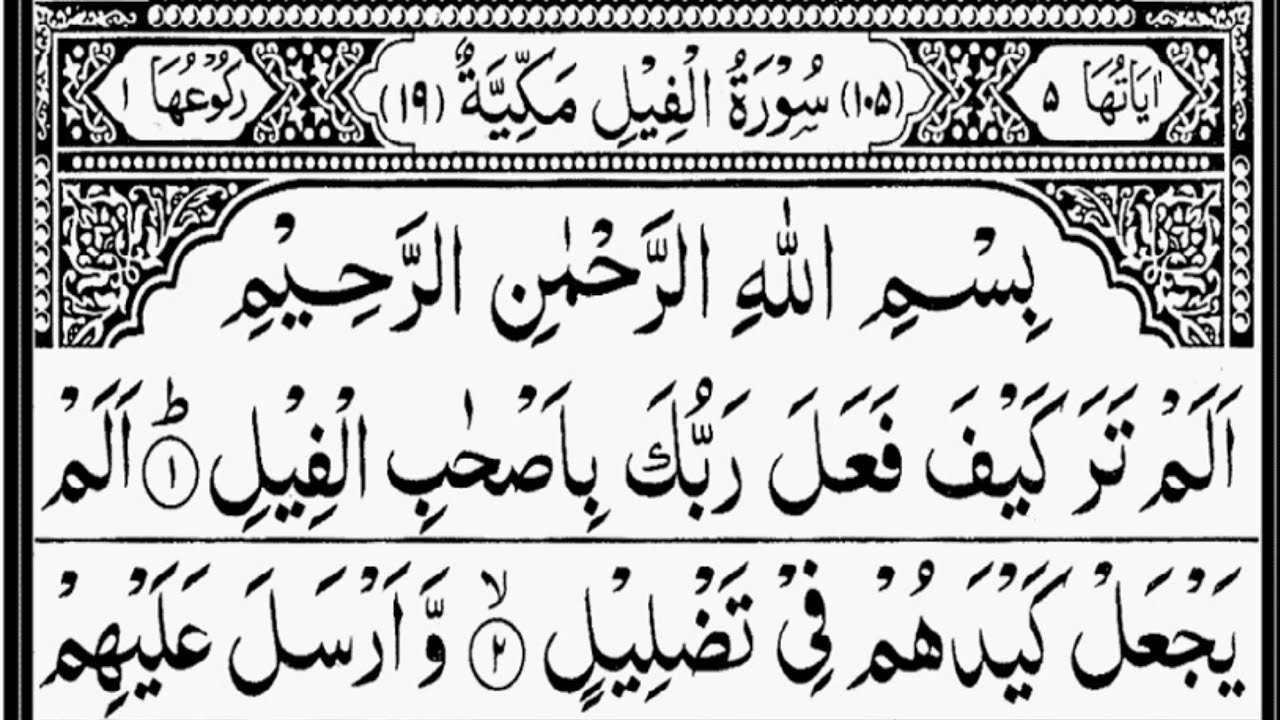 اٰيَاتُهَا ٥ (١٠٥) سُوْرَةُ الْفِيْلِ مَكِّيَّةٌ (١٩) رَكُوْعُهَا ١
بِسْمِ اللّٰهِ الرَّحْمٰنِ الرَّحِيْمِ
اَلَمْ تَرَ كَيْفَ فَعَلَ رَبُّكَ بِاَصْحٰبِ الْفِيْلِ ؕ ۝١ اَلَمْ
يَجْعَلْ كَيْدَهُمْ فِيْ تَضْلِيْلٍ ۙ ۝٢ وَّ اَرْسَلَ عَلَيْهِمْ